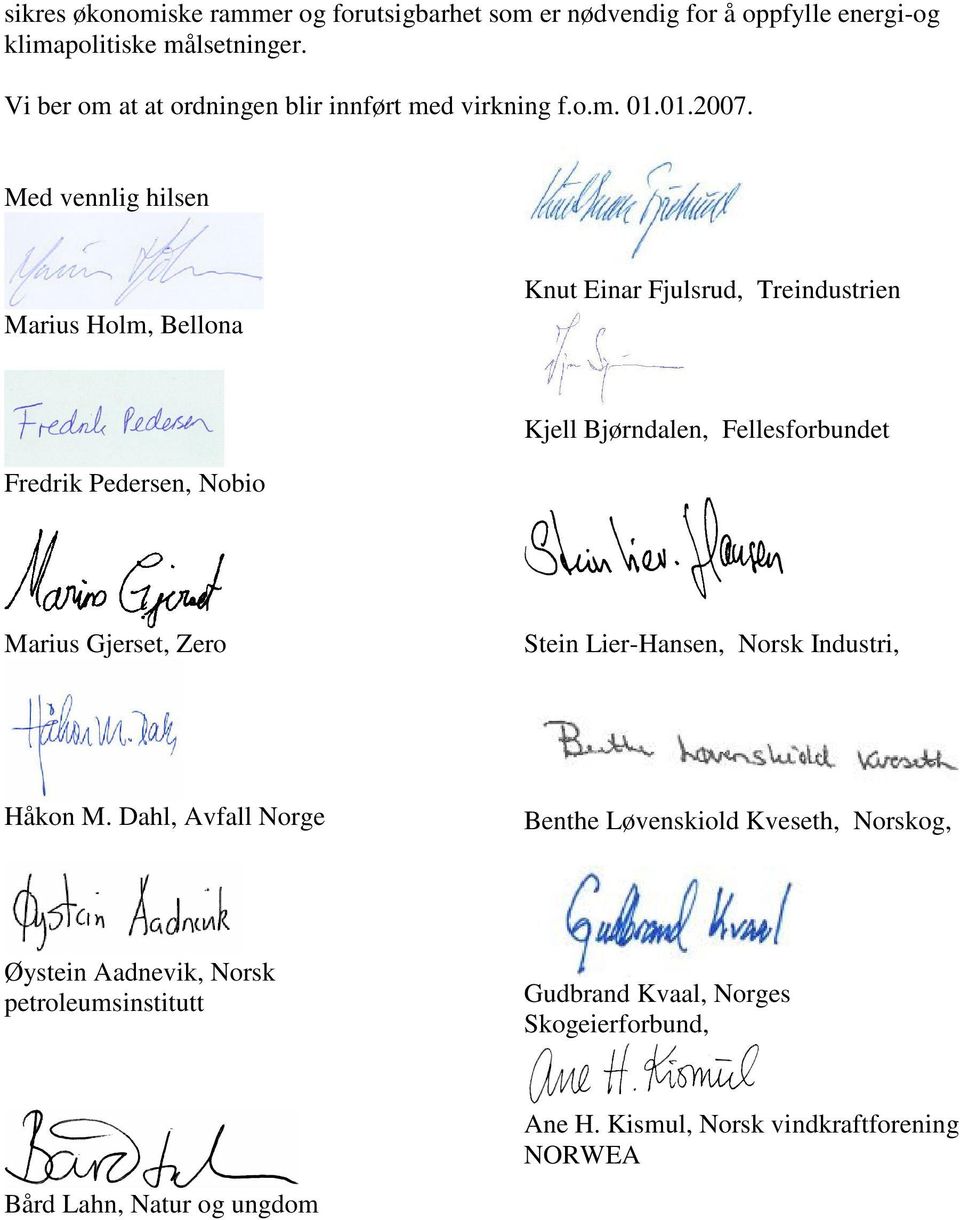 sikres økonomiske rammer og forutsigbarhet som er nødvendig for å oppfylle energi-og
klimapolitiske målsetninger.
Vi ber om at at ordningen blir innført med virkning f.o.m. 01.01.2007.
Med vennlig hilsen
Marius Holm
Marius Holm, Bellona
Fredrik Pedersen
Fredrik Pedersen, Nobio
Marius Gjerset
Marius Gjerset, Zero
Håkon M. Dahl
Håkon M. Dahl, Avfall Norge
Øystein Aadnevik
Øystein Aadnevik, Norsk
petroleumsinstitutt
Bård Lahn, Natur og ungdom
Knut Einar Fjulsrud, Treindustrien
Kjell Bjørndalen, Fellesforbundet
Stein Lier-Hansen
Stein Lier-Hansen, Norsk Industri,
Benthe Løvenskiold Kveseth
Benthe Løvenskiold Kveseth, Norskog,
Gudbrand Kvaal
Gudbrand Kvaal, Norges
Skogeierforbund,
Ane H. Kismul
Ane H. Kismul, Norsk vindkraftforening
NORWEA